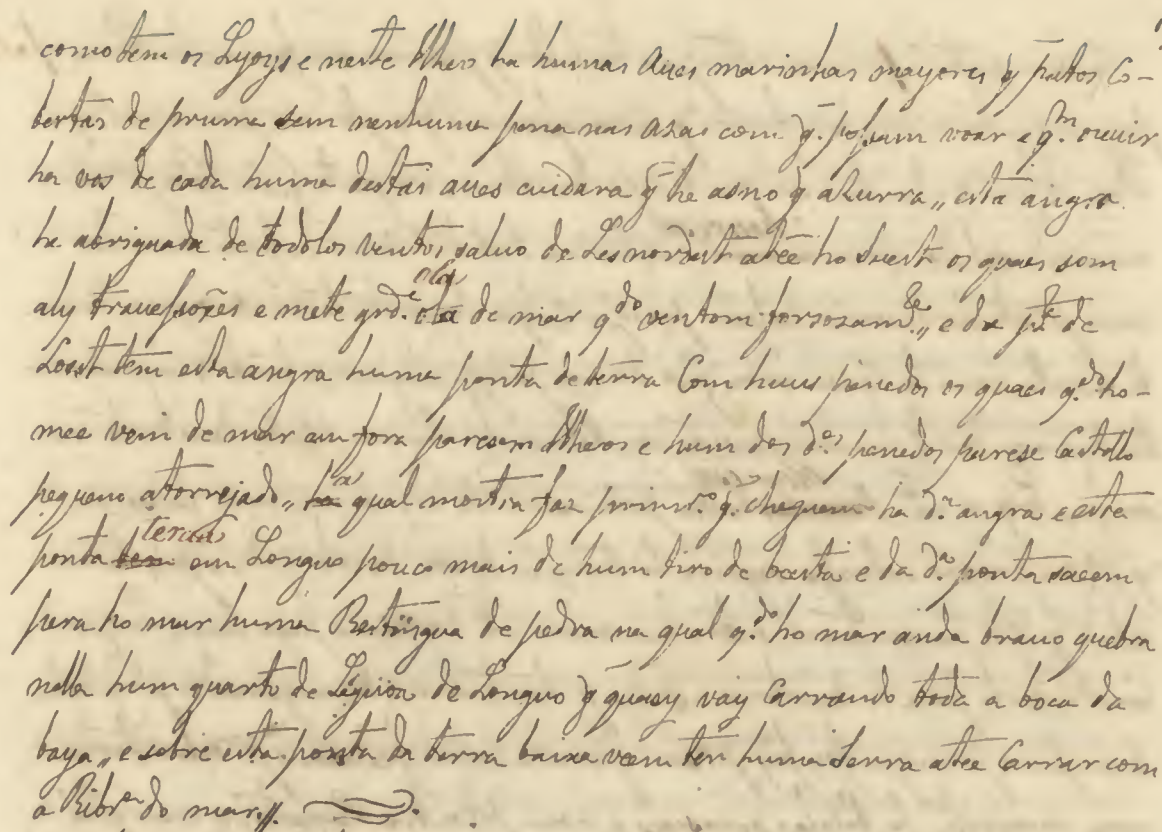 como tem os Lyoys e neste Ilheo ha humas Aues marinhas mayores q̃ patos Co-
bertas de pruma sem nenhuma pena nas Azas com q̃. posam voar e q.m ouuir
ha vos de cada huma destas aues cuidara q̃ he asno q̃ aZurra,, esta angra
he abriguada de todolos ventos saluo de Lesnordest atee ho Suest os quaes som
aly trauesões e mete grd.e ola ola de mar q.do ventom forsozam.te,, e da p.te de
Losst tem esta angra huma ponta de terra Com huns penedos os quaes q.do ho-
mee vem de mar am fora paresem Ilheos e hum dos d.os penedos parese Castello
pequeno atorrejado,, ha a qual mostra faz primr.o q̃. cheguem ha d.a angra e esta
ponta tem tera em Longuo pouco mais de hum tiro de beesta e da d.a ponta saeem
pera ho mar huma Restingua de pedra na qual q.do ho mar anda brauo quebra
nella hum quarto de Leguoa de Longuo q̃ quasy vay Carrando toda a boca da
baya,, e sobre esta ponta da terra baixa veem ter huma Serra atee Carrar com
a Ribr.a do mar,,.